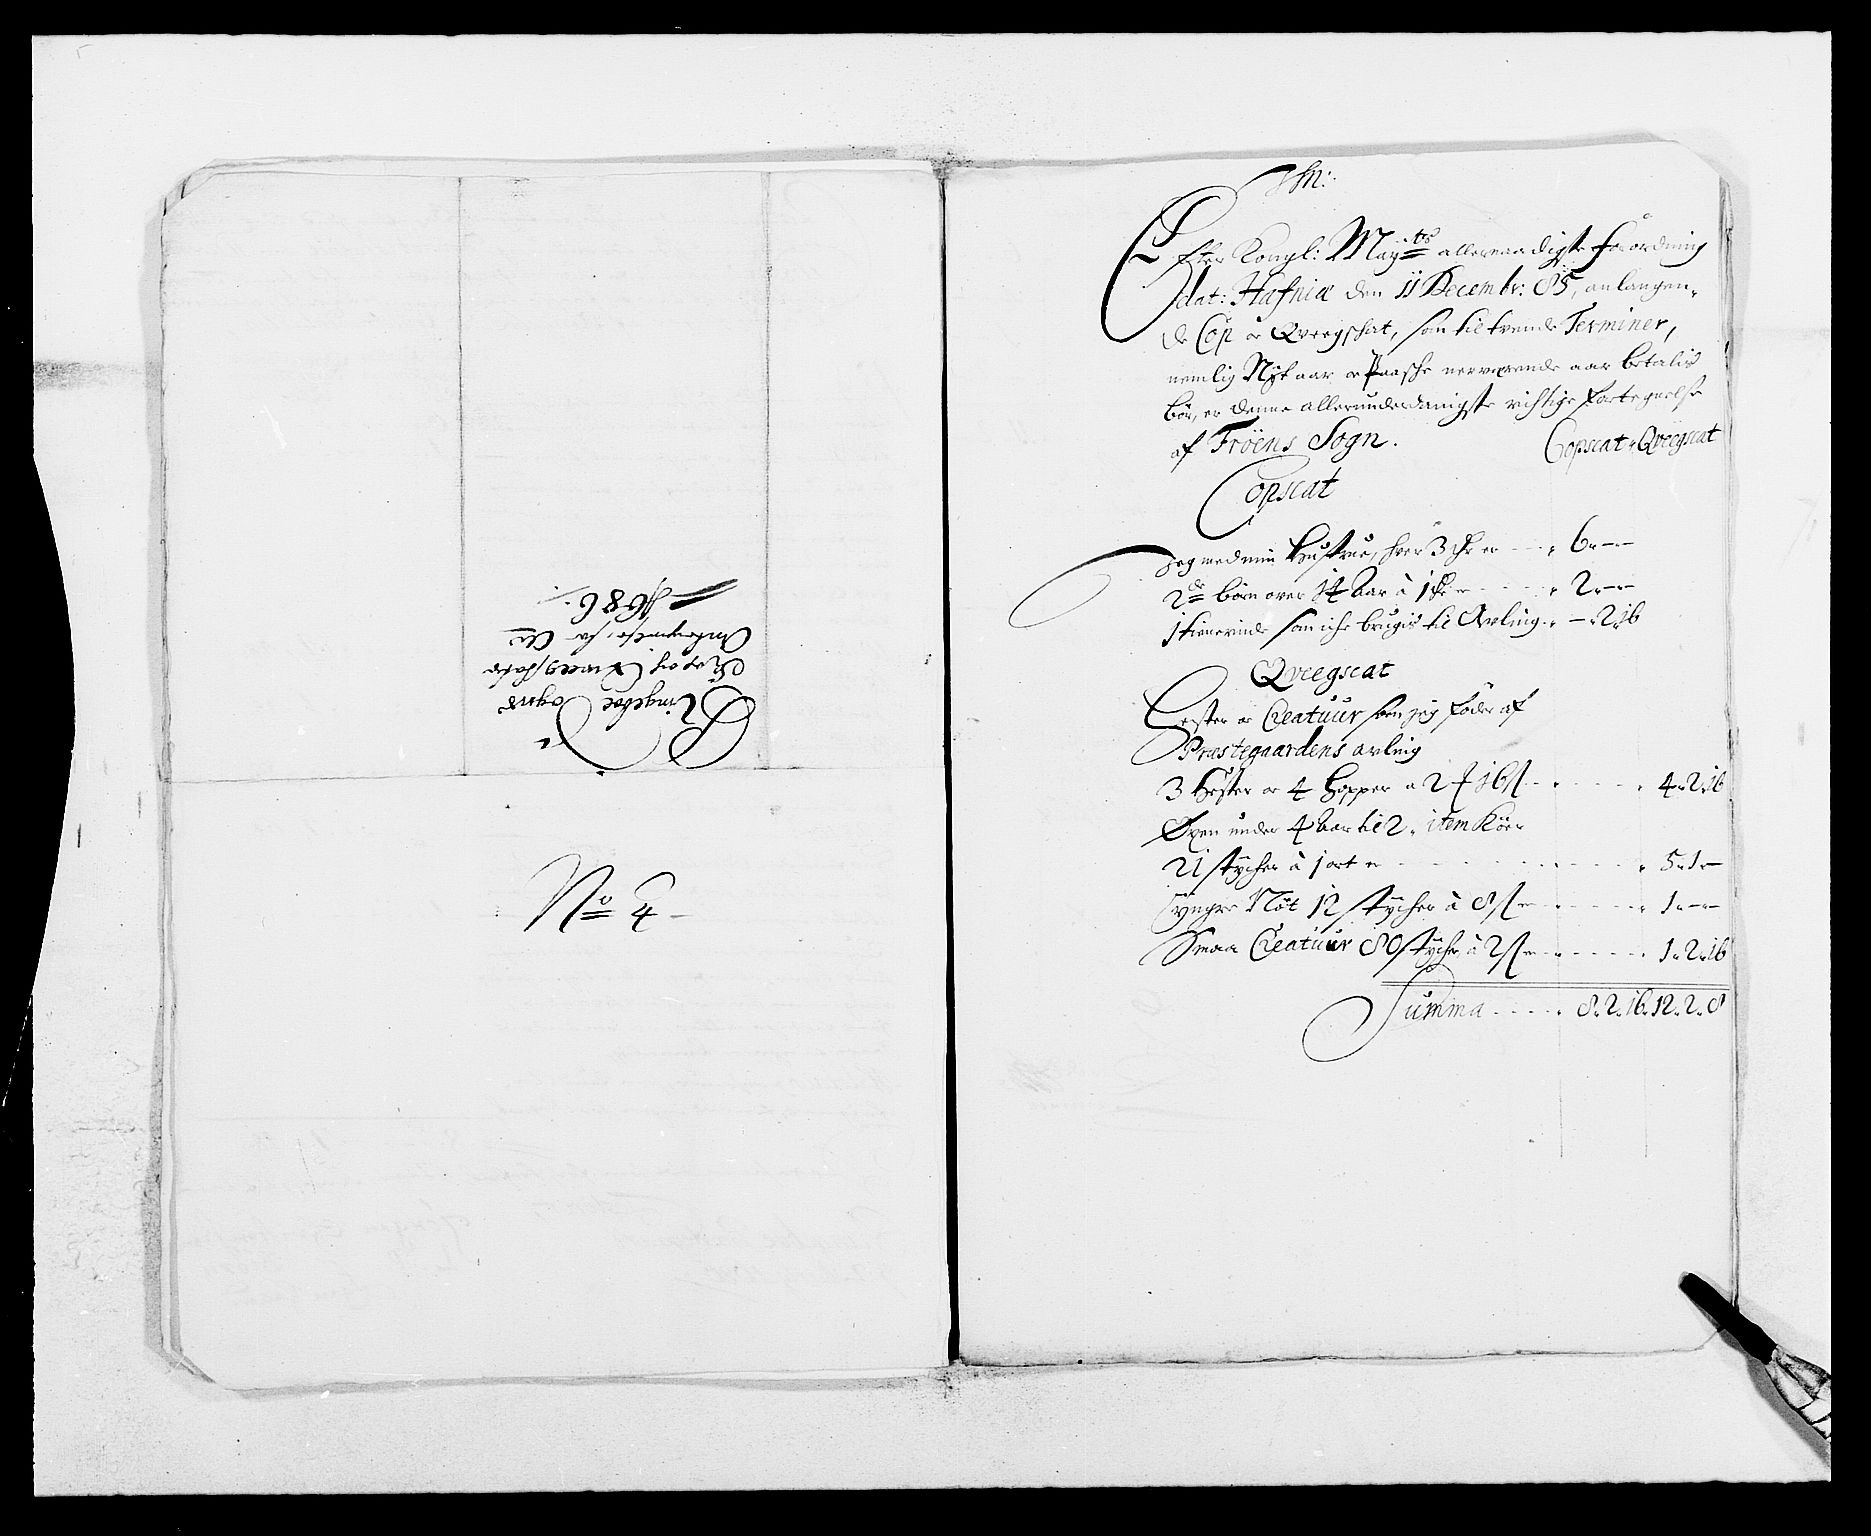 Ringeboe Sogns
Kop og Qvægschatz
Antegnelse for Aar
1686.
No 4
Ihn:
Efter Kongl: May:ts allernaadigste forordning
dat: Hafniæ den 11 Decembr: 85, anlangen-
de Cop oc Qvegschat, som til tvende Terminer,
nemlig Nyt aar oc Paasche nerværende aar betalis
bør, er denne allerunderdanigste richtige fortegnelse
af Fröens Sogn. Copscat. Qveegscat
Copscat
Jeg med min Hustrue, hver 3 Ort er ---- 6.---
2de børn over 14 Aar à 1 Ort er ---- 2.---
1 tienerinde som iche brugis til Avling. --2.16
Qveegscat
Hester oc Creatuur som jeg føder af
Præstegaardens avling
3 Hester oc 4 Hopper a 2 ort 16 s ---- 4.2.16
Øxen under 4 Aar til 2. item Köer
21 stycher à 1 ort er ---- 5.1.-
Yngre Nöt 12 stycher à 8 s er ---- 1.---
Smaa Creatuur 80 stycher à 2 s er ---- 1.2.16
Summa ---- 8.2.16. 12.2.8